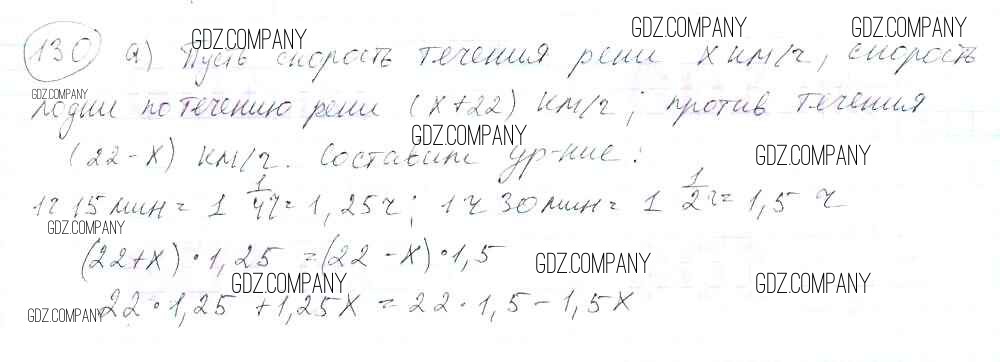 130 а) Пусть скорость течения реки x км/ч, скорость
лодки по течению реки (x+22) км/ч; против течения
(22-x) км/ч. Составим ур-ние:
1ч 15 мин = 1 1/4 ч = 1,25 ч; 1 ч 30 мин = 1 1/2 ч = 1,5 ч
(22+x)·1,25 = (22-x)·1,5
22·1,25 + 1,25x = 22·1,5 - 1,5x
GDZ.COMPANY
GDZ.COMPANY
GDZ.COMPANY
GDZ.COMPANY
GDZ.COMPANY
GDZ.COMPANY
GDZ.COMPANY
GDZ.COMPANY
GDZ.COMPANY
GDZ.COMPANY
GDZ.COMPANY